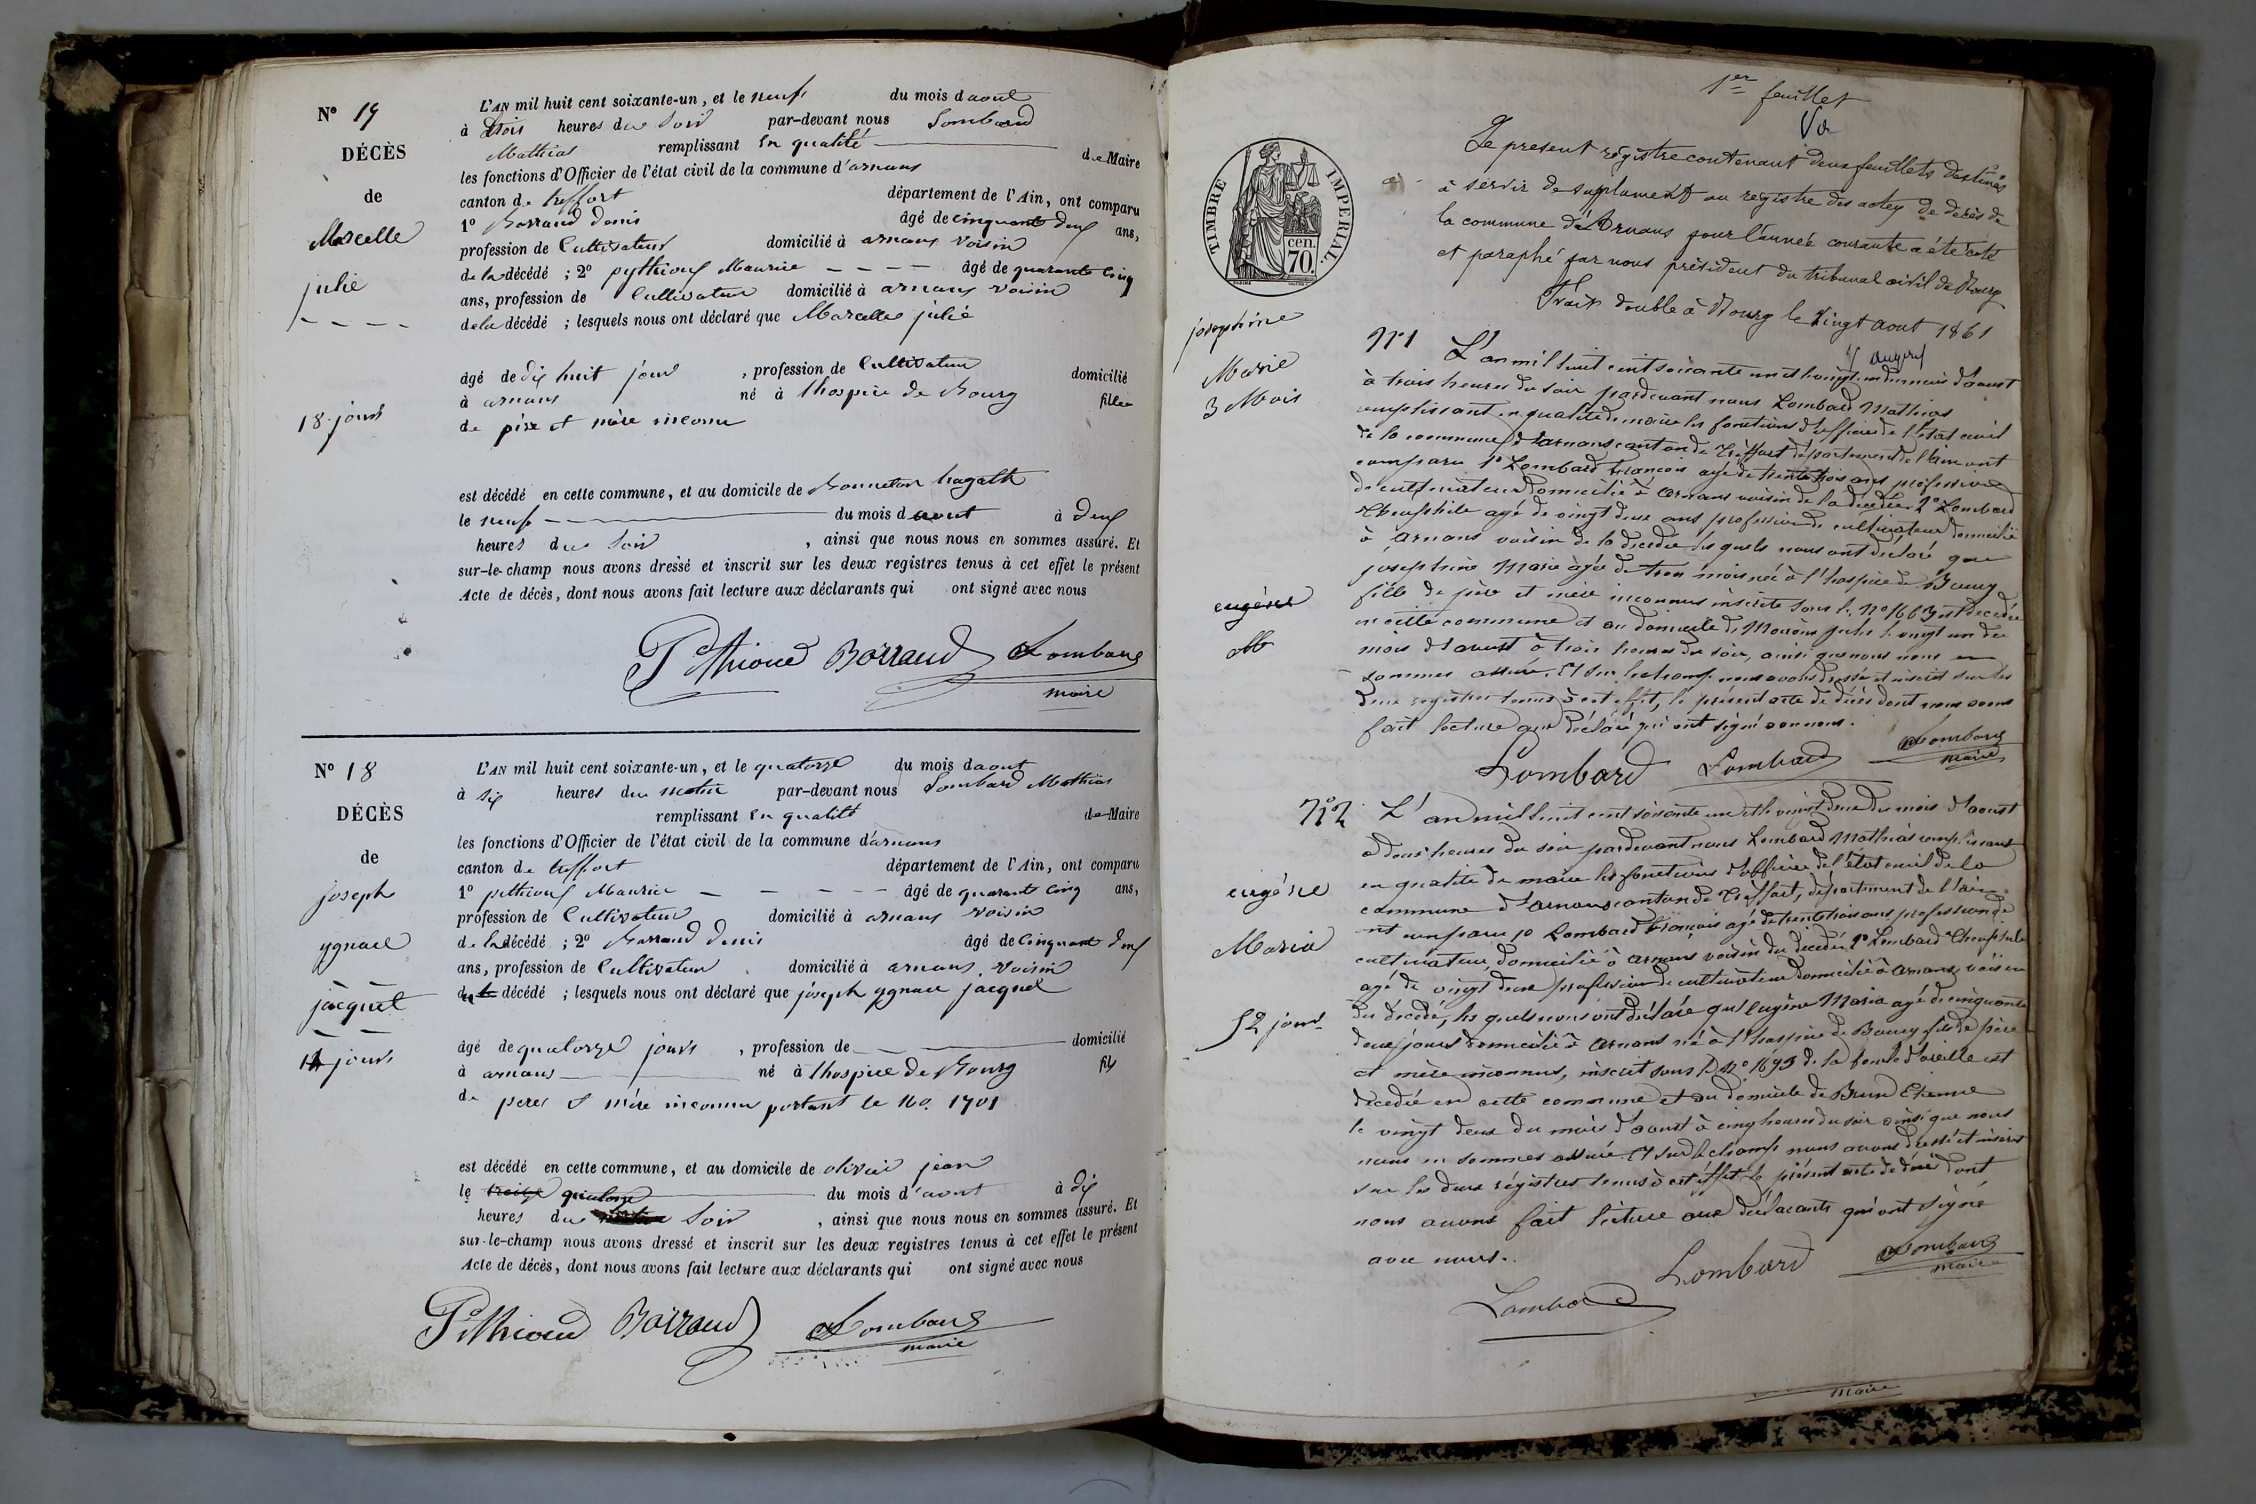 N° 19
DÉCÈS
de
Marcelle
julie
18 jours
L'AN mil huit cent soixante-un, et le neuf du mois d aout
à trois heures du soir par-devant nous Lombard
Mathias remplissant en qualité de Maire
les fonctions d'Officier de l'état civil de la commune d'arnans
canton de treffort département de l'Ain, ont comparu
1° Borraud denis âgé de cinquante deux ans,
profession de Cultivateur domicilié à arnans voisin
de la décédé ; 2° pythioux Maurice âgé de quarante cinq
ans, profession de Cultivateur domicilié à arnans voisin
de la décédé ; lesquels nous ont déclaré que Marcelle julie
âgé de dix huit jour , profession de Cultivateur domicilié
à arnans né à l'hospice de Bourg fille
de père et mère inconnu
est décédé en cette commune, et au domicile de
le neuf du mois d aout à deux
heures du soir , ainsi que nous nous en sommes assuré. Et
sur-le-champ nous avons dressé et inscrit sur les deux registres tenus à cet effet le présent
Acte de décès, dont nous avons fait lecture aux déclarants qui ont signé avec nous
Pethioud Borraud Lombard
maire
N° 18
DÉCÈS
de
joseph
ygnace
jacquet
14 jours
L'AN mil huit cent soixante-un, et le quatorze du mois d aout
à six heures du matin par-devant nous Lombard Mathias
remplissant en qualité de Maire
les fonctions d'Officier de l'état civil de la commune d'arnans
canton de treffort département de l'Ain, ont comparu
1° pethioux Maurice âgé de quarante cinq ans,
profession de Cultivateur domicilié à arnans voisin
de la décédé ; 2° Borraud denis âgé de cinquante deux
ans, profession de Cultivateur domicilié à arnans voisin
du décédé ; lesquels nous ont déclaré que joseph ygnace jacquet
âgé de quatorze jours , profession de domicilié
à arnans né à l'hospice de Bourg fils
de perer et mère inconnu portant le No. 1701
est décédé en cette commune, et au domicile de olivier jean
le treize quatorze du mois d'aout à dix
heures du soir , ainsi que nous nous en sommes assuré. Et
sur-le-champ nous avons dressé et inscrit sur les deux registres tenus à cet effet le présent
Acte de décès, dont nous avons fait lecture aux déclarants qui ont signé avec nous
Pethioud Borraud Lombard
maire
1er feuillet
TIMBRE IMPERIAL
cen.
70.
Le present régistre contenant deux feuillets destinés
à servir de supplement au registre des actes de décès de
la commune d'Arnans pour l'année courante a été coté
et paraphé par nous président du tribunal civil de Bourg
Fait double à Bourg le vingt aout 1861
josephine
Marie
3 Mois
N°1 L'an mil huit cent soixante un et le vingt un du mois d'aoust
à trois heures du soir pardevant nous Lombard Mathias
remplissant en qualité de maire les fonctions d'officier de l'état civil
de la commune d'Arnans canton de Treffort département de l'Ain ont
comparu 1° Lombard François agé de trente trois ans profession
de cultivateur domicilié à Arnans voisin de la décédée 2° Lombard
Theophile agé de vingt deux ans profession de cultivateur domicilié
à Arnans voisin de la decedée les quels nous ont déclaré que
josephine Marie agée de trois mois née à l'hospice de Bourg
fille de père et mère inconnus inscrite sous le N° 1663 est decedée
en cette commune et au domicile de le vingt un du
mois d'aoust à trois heures du soir, ainsi que nous nous en
sommes assuré. Et sur le champ nous avons dressé et inscrit sur les
deux registres tenus à cet effet, le présent acte de décès dont nous avons
fait lecture aux déclaré qui ont signé avec nous.
Lombard Lombard Lombard
maire
eugéne
N°2 L'an mil huit cent soixante un et le vingt deux du mois d'aoust
à deux heures du soir pardevant nous Lombard Mathias remplissant
en qualité de maire les fonctions d'officier de l'état civil de la
commune d'Arnans canton de Treffort, département de l'Ain
ont comparu 1° Lombard François agé de trente trois ans profession de
cultivateur domicilié à Arnans voisin du decedée 2° Lombard Theophile
agé de vingt deux profession de cultivateur domicilié à Arnans voisin
du décedé, les quels nous ont déclaré que eugène Maria agé de cinquante
deux jours domicilié à Arnans né à l'hospice de Bourg fils de père
et mère inconnus, inscrit sous le N° 1693 de la boucle d'oreille est
decedé en cette commune et au domicile de Brun Etienne
le vingt deux du mois d'aoust à cinq heures du soir ainsi que nous
nous en sommes assuré. Et sur le champ nous avons dressé et inscrit
sur les deux régistres tenus à cet effet le présent acte de décès dont
nous avons fait lecture aux déclarants qui ont signé
avec nous.
eugéne
Maria
52 jours
Lombard Lombard Lombard
maire
maire